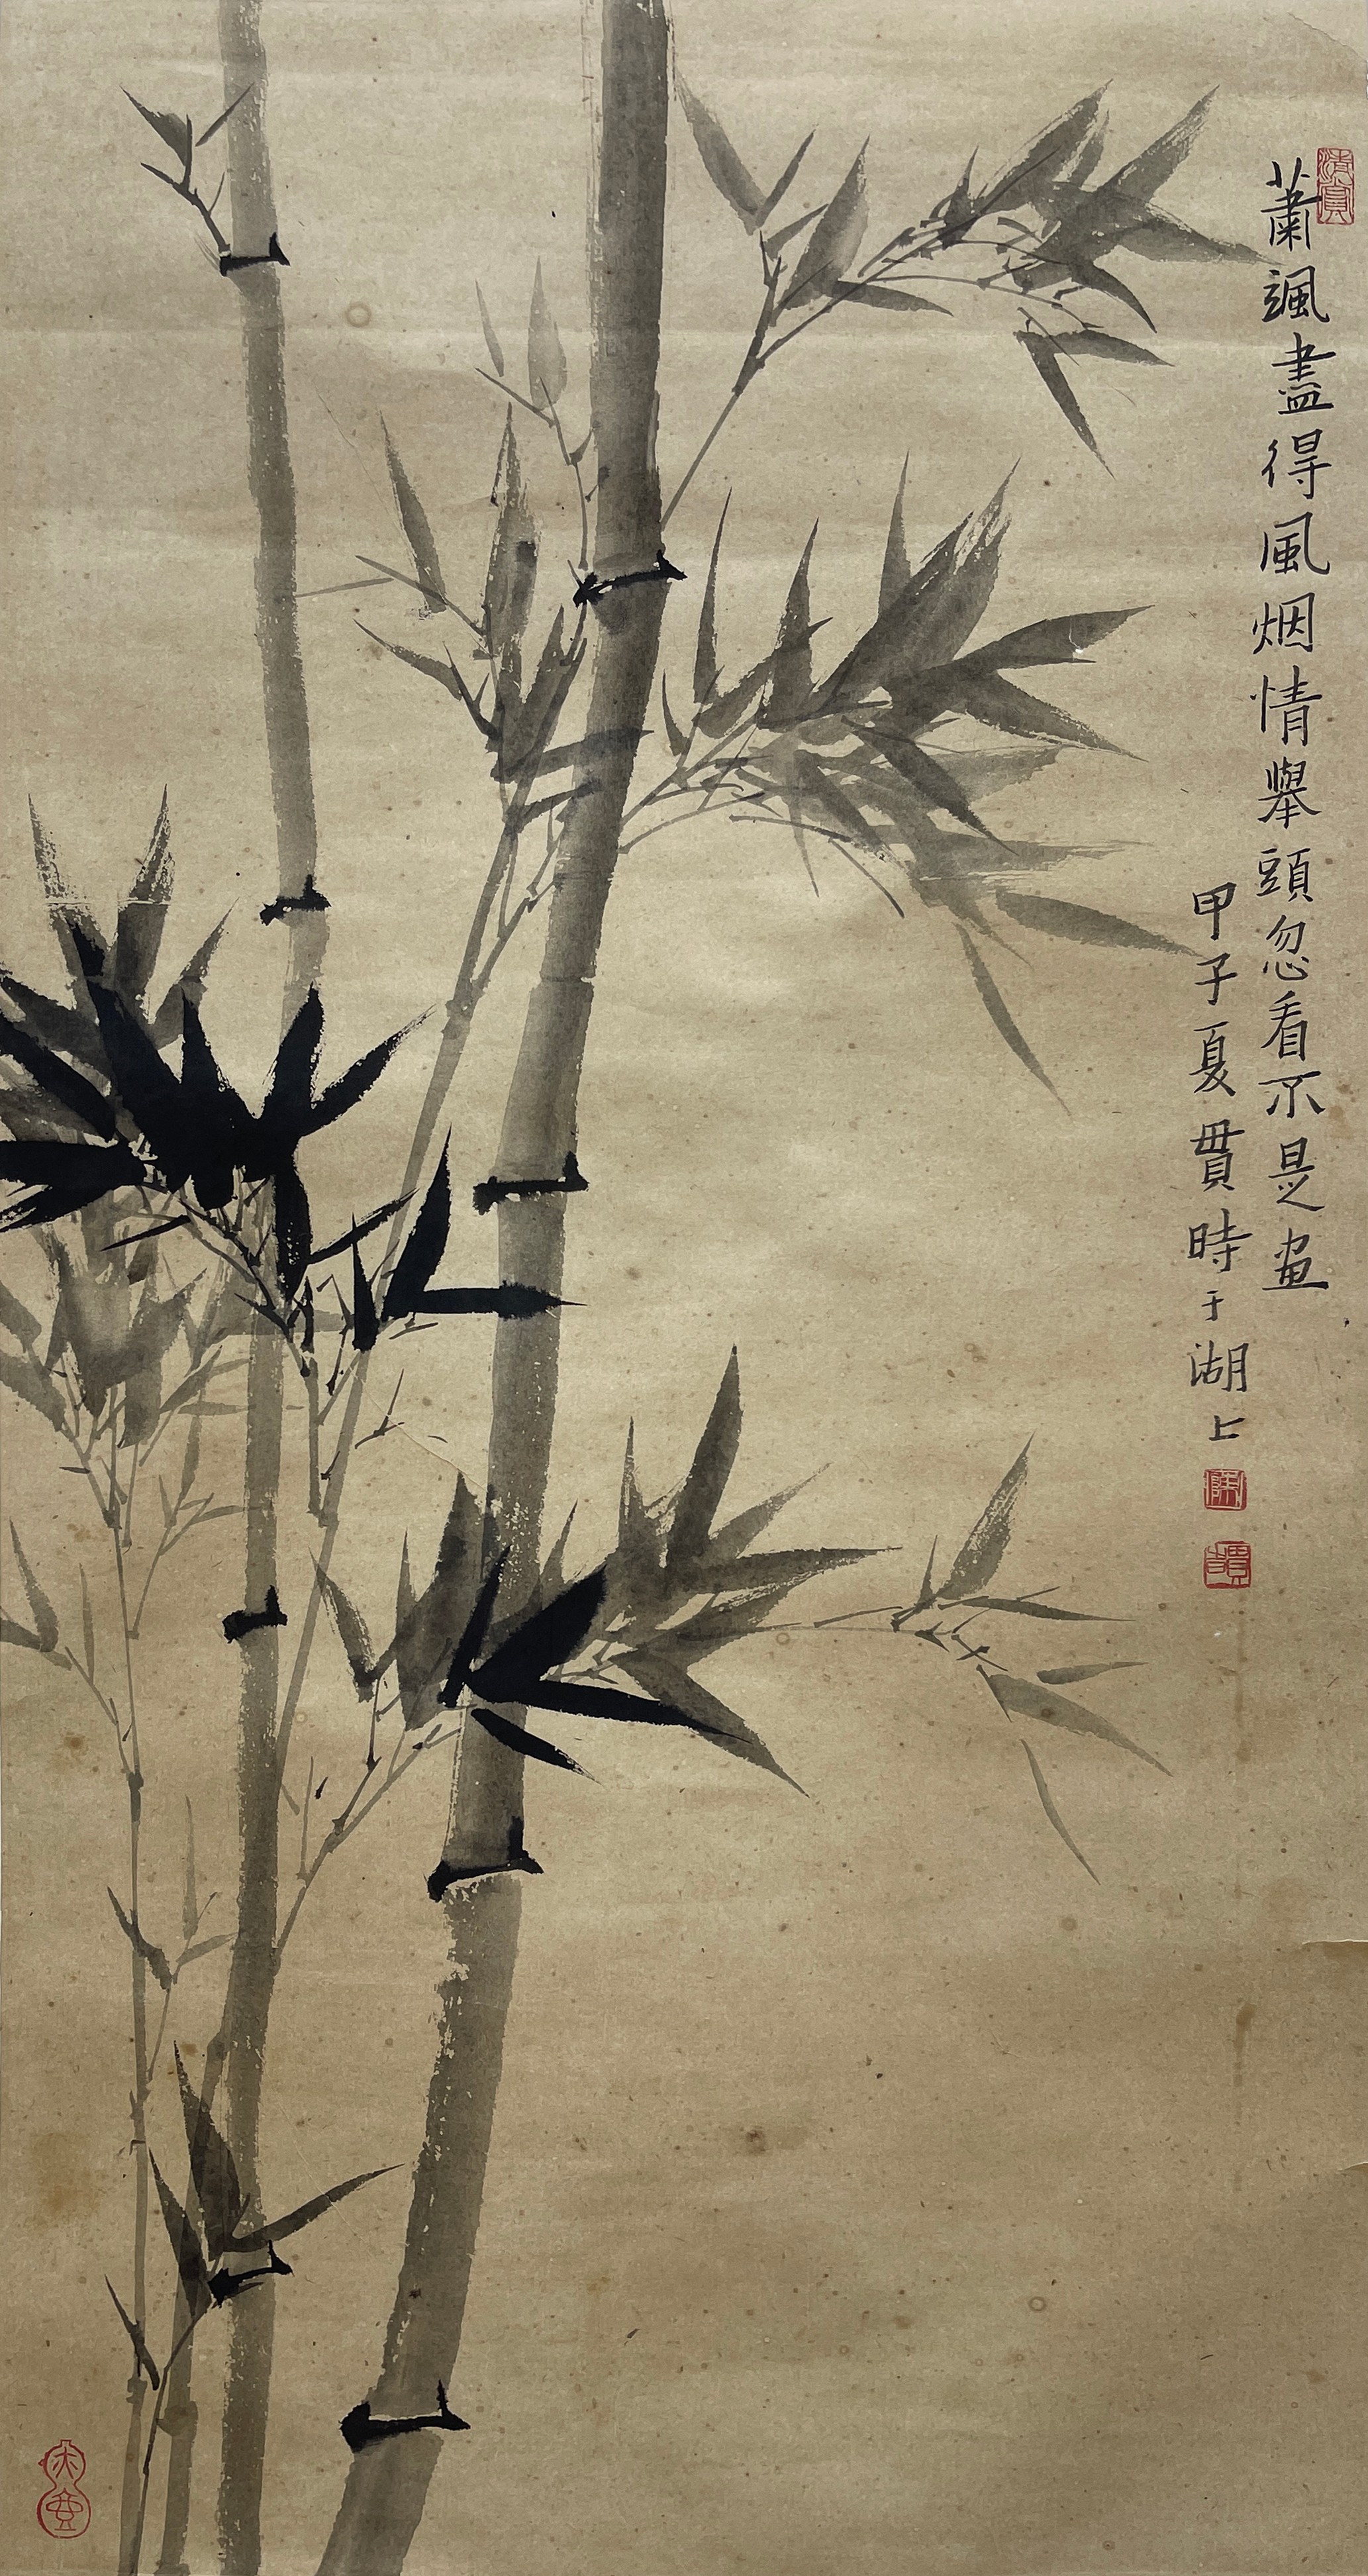 蕭颯盡得風烟情舉頭忽看不是畫
甲子夏貫時于湖上
陳